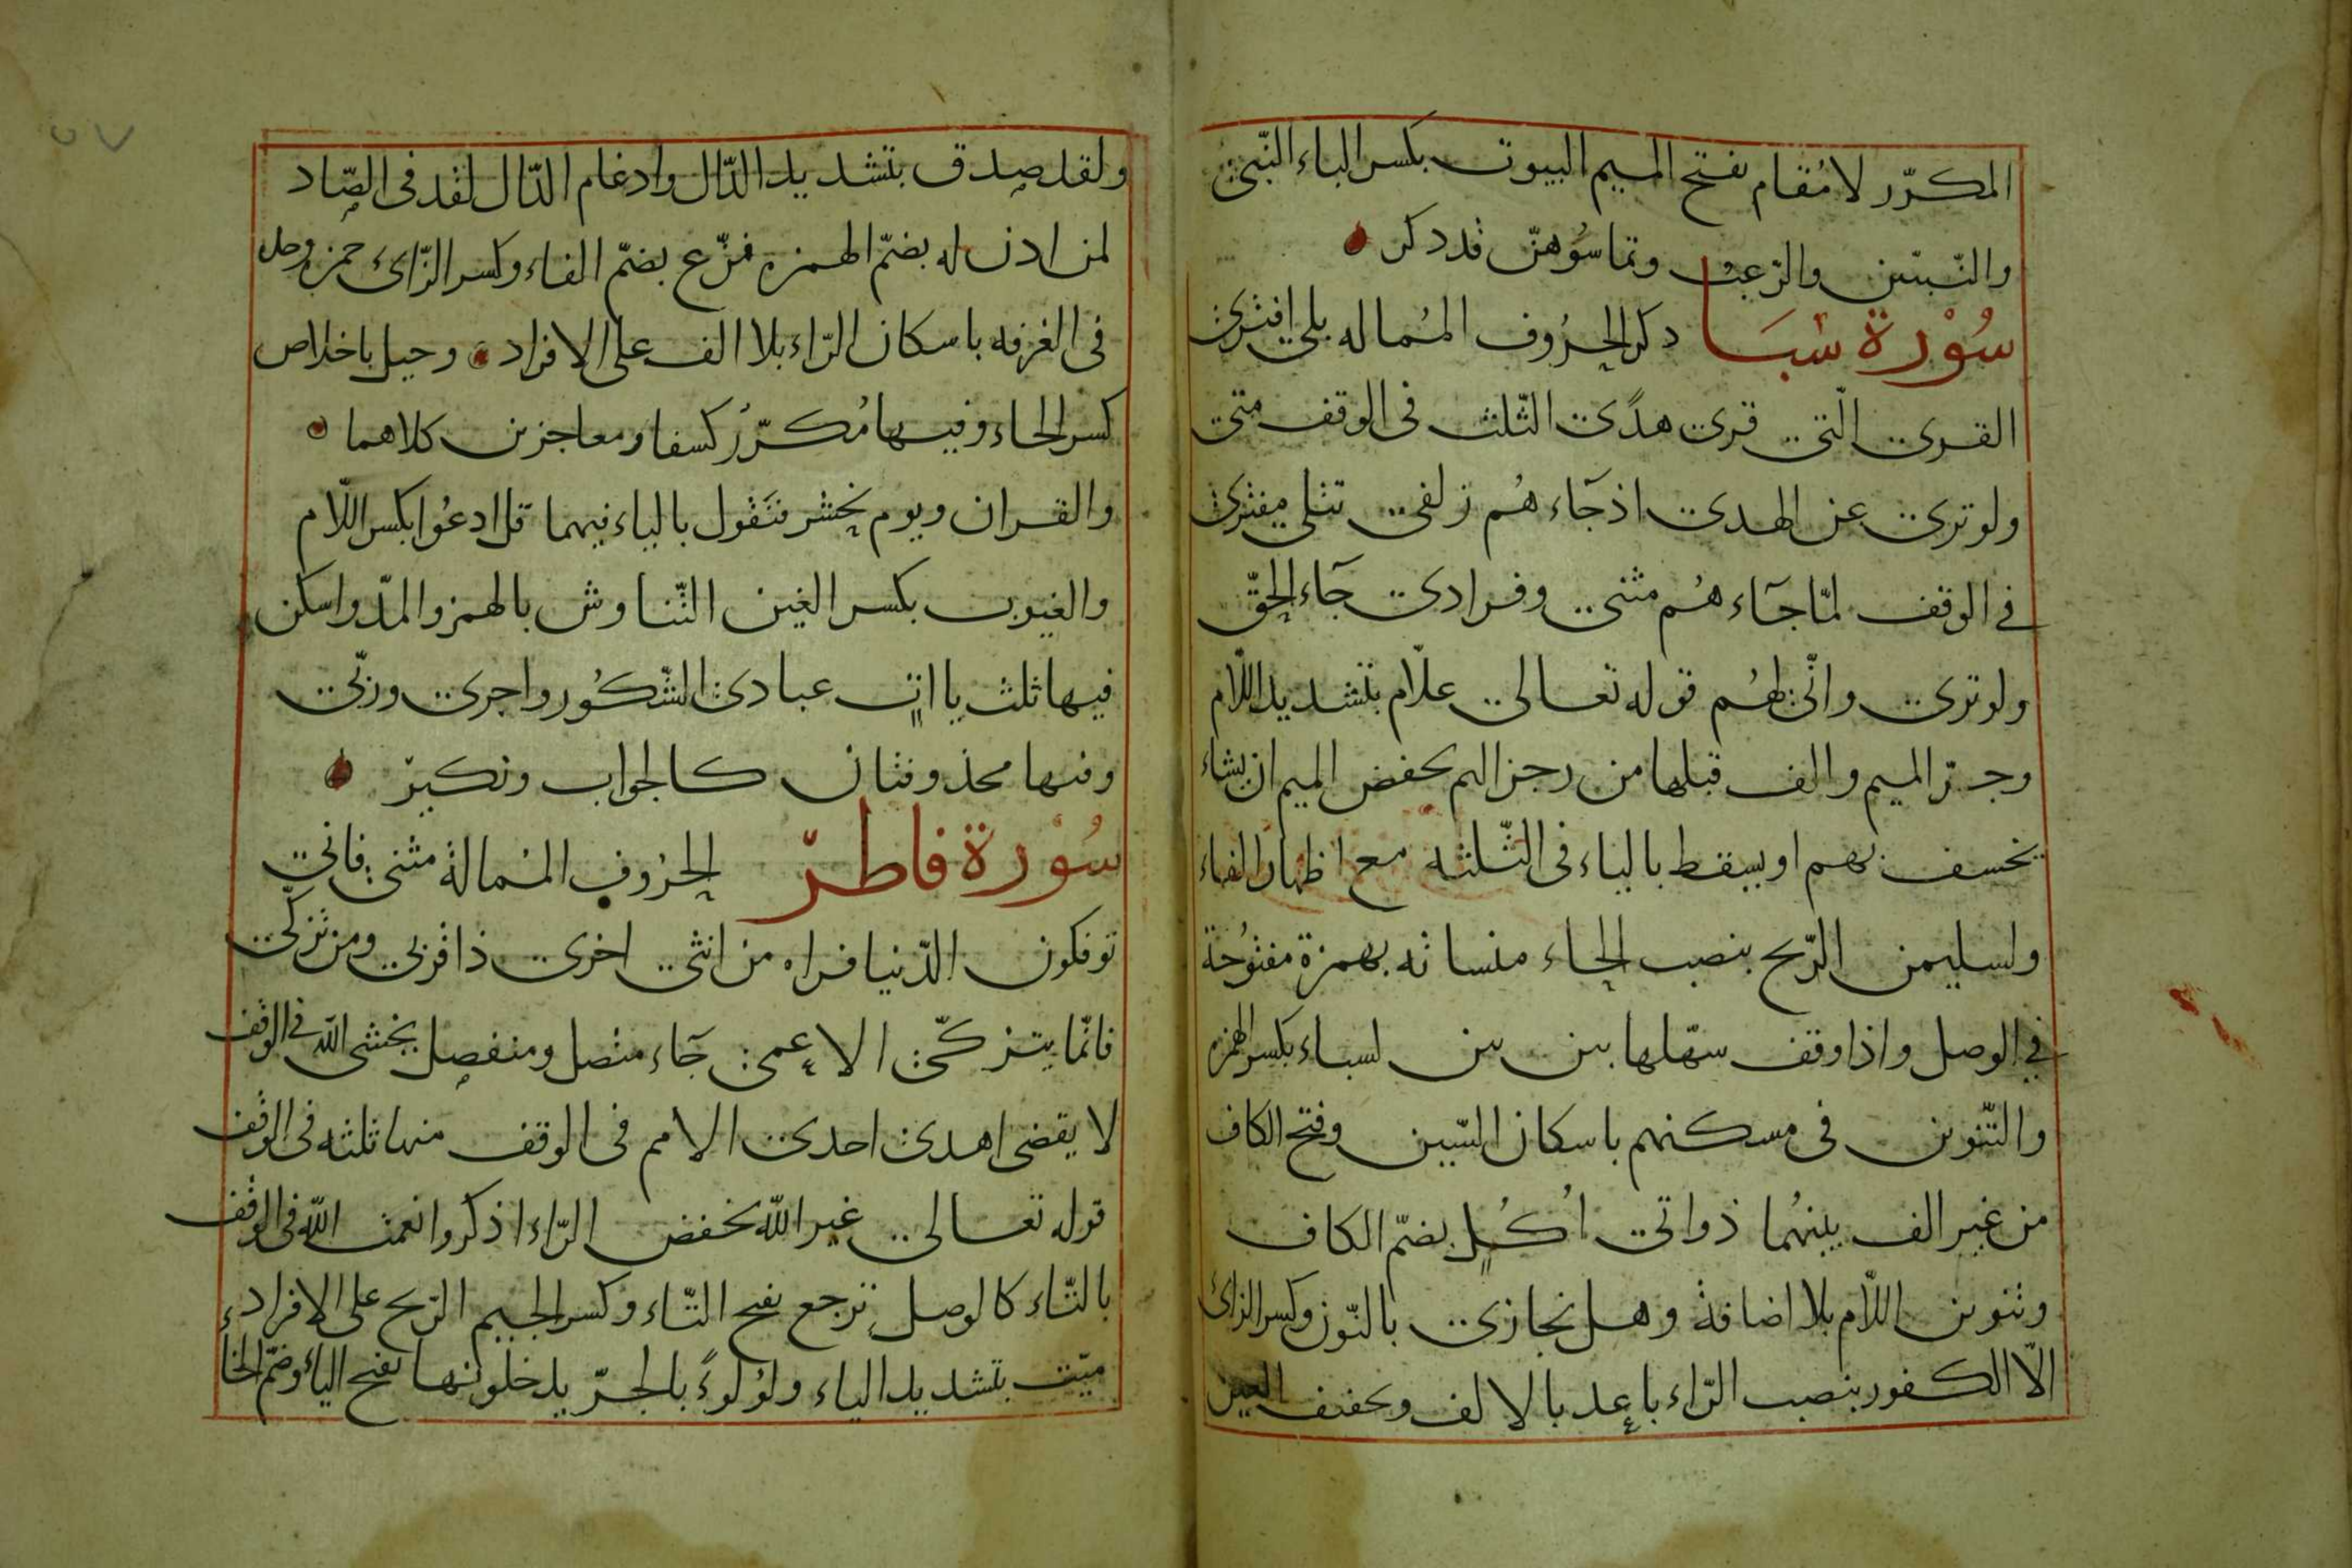 المكرّر لا مُقام بفتح الميم البيوت بكسر الباء النّبىّ
والنّبيّين والرّعب وتماسّوهنّ قد ذكر
سُوْرة سَبَا ذكر الحرُوف المُماله بلى افترى
القرى الّتى قرى هدًى الثّلث فى الوقف متى
ولو ترى عن الهدى اذ جَاءهُم زلفى تتلى مفترى
فى الوقف لمّا جَاءهُم مثنى وفرادى جَاء الحقّ
ولو ترى وانّى لهُم قوله تعالى علّام بتشديد اللّام
وجرّ الميم والف قبلها من رجز اليم بخفض الميم ان يشاء
يخسف بهم او يسقط بالياء فى الثّلثه مع اظهار الفاء
ولسليمن الرّيح بنصب الحاء منسأته بهمزة مفتوُحة
فى الوصل واذا وقف سهّلها بين بين لسباء بكسر الهمزه
والتّنوين فى مسكنهم باسكان السّين وفتح الكاف
من غير الف بينهُما ذواتى اُكُلٍ بضمّ الكاف
وتنوين اللّام بلا اضافة وهل نجازى بالنّون وكسر الزائ
الّا الكفور بنصب الرّاء باعد بالالف وتخفيف العين
ولقد صدق بتشديد الدّال وادغام الدّال لقد فى الصّاد
لمن اذن له بضمّ الهمزه فزّع بضمّ الفاء وكسر الزّائ حمزه وحده
فى الغرفه باسكان الرّاء بلا الف على الافراد وحيل باخلاص
كسر الحاء وفيها مُكرّر كسفا ومعاجزين كلاهما
والقران ويوم يحشر فنَقول بالياء فيهما قل ادعُوا بكسر اللّام
والغيوب بكسر الغين التّناوش بالهمز والمدّ واسكن
فيها ثلث ياات عبادى الشّكُور واجرى وربّى
وفيها محذوفتان كالجواب ونكير
سُوْرة فاطرّ الحرُوف المُمالة مثنى فانى
توفكون الدّنيا فراه من انثى اخرى ذا قربى ومن تزكّى
فانّما يتزكّى الاعمى جَاء متصل ومنفصل يخشى الله فى الوقف
لا يقضى اهدى احدى الامم فى الوقف منها ثلثه فى الوقف
قوله تعالى غير الله بخفض الرّاء اذكروا نعمت الله فى الوقف
بالتّاء كالوصل ترجع بفتح التّاء وكسر الجيم الرّيح على الافراد
ميّت بتشديد الياء ولؤلوءً بالجرّ يدخلونها بفتح الياء وضمّ الخا